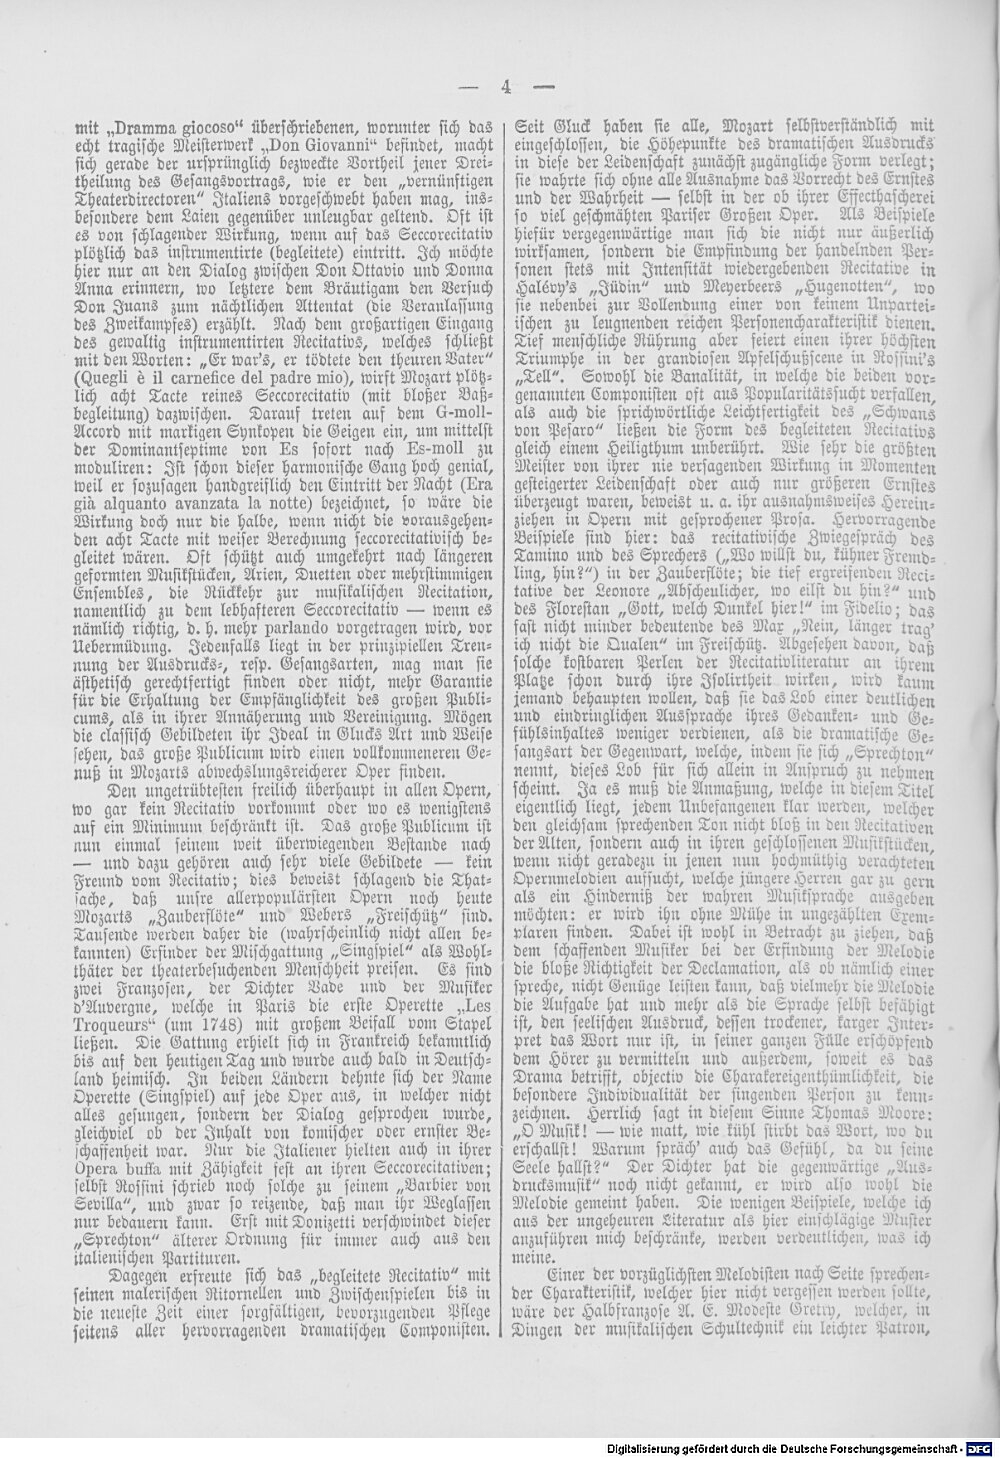 — 4 —
mit „Dramma giocoso“ überschriebenen, worunter sich das
echt tragische Meisterwerk „Don Giovanni“ befindet, macht
sich gerade der ursprünglich bezweckte Vortheil jener Drei-
theilung des Gesangsvortrags, wie er den „vernünftigen
Theaterdirectoren“ Italiens vorgeschwebt haben mag, ins-
besondere dem Laien gegenüber unleugbar geltend. Oft ist
es von schlagender Wirkung, wenn auf das Seccorecitativ
plötzlich das instrumentirte (begleitete) eintritt. Ich möchte
hier nur an den Dialog zwischen Don Ottavio und Donna
Anna erinnern, wo letztere dem Bräutigam den Versuch
Don Juans zum nächtlichen Attentat (die Veranlassung
des Zweikampfes) erzählt. Nach dem großartigen Eingang
des gewaltig instrumentirten Recitativs, welches schließt
mit den Worten: „Er war's, er tödtete den theuren Vater“
(Quegli è il carnefice del padre mio), wirft Mozart plötz-
lich acht Tacte reines Seccorecitativ (mit bloßer Baß-
begleitung) dazwischen. Darauf treten auf dem G-moll-
Accord mit markigen Synkopen die Geigen ein, um mittelst
der Dominantseptime von Es sofort nach Es-moll zu
moduliren: Ist schon dieser harmonische Gang hoch genial,
weil er sozusagen handgreiflich den Eintritt der Nacht (Era
già alquanto avanzata la notte) bezeichnet, so wäre die
Wirkung doch nur die halbe, wenn nicht die vorausgehen-
den acht Tacte mit weiser Berechnung seccorecitativisch be-
gleitet wären. Oft schützt auch umgekehrt nach längeren
geformten Musikstücken, Arien, Duetten oder mehrstimmigen
Ensembles, die Rückkehr zur musikalischen Recitation,
namentlich zu dem lebhafteren Seccorecitativ — wenn es
nämlich richtig, d. h. mehr parlando vorgetragen wird, vor
Uebermüdung. Jedenfalls liegt in der prinzipiellen Tren-
nung der Ausdrucks-, resp. Gesangsarten, mag man sie
ästhetisch gerechtfertigt finden oder nicht, mehr Garantie
für die Erhaltung der Empfänglichkeit des großen Publi-
cums, als in ihrer Annäherung und Vereinigung. Mögen
die classisch Gebildeten ihr Ideal in Glucks Art und Weise
sehen, das große Publicum wird einen vollkommeneren Ge-
nuß in Mozarts abwechslungsreicherer Oper finden.
Den ungetrübtesten freilich überhaupt in allen Opern,
wo gar kein Recitativ vorkommt oder wo es wenigstens
auf ein Minimum beschränkt ist. Das große Publicum ist
nun einmal seinem weit überwiegenden Bestande nach
— und dazu gehören auch sehr viele Gebildete — kein
Freund vom Recitativ; dies beweist schlagend die That-
sache, daß unsre allerpopulärsten Opern noch heute
Mozarts „Zauberflöte“ und Webers „Freischütz“ sind.
Tausende werden daher die (wahrscheinlich nicht allen be-
kannten) Erfinder der Mischgattung „Singspiel“ als Wohl-
thäter der theaterbesuchenden Menschheit preisen. Es sind
zwei Franzosen, der Dichter Vade und der Musiker
d'Auvergne, welche in Paris die erste Operette „Les
Troqueurs“ (um 1748) mit großem Beifall vom Stapel
ließen. Die Gattung erhielt sich in Frankreich bekanntlich
bis auf den heutigen Tag und wurde auch bald in Deutsch-
land heimisch. In beiden Ländern dehnte sich der Name
Operette (Singspiel) auf jede Oper aus, in welcher nicht
alles gesungen, sondern der Dialog gesprochen wurde,
gleichviel ob der Inhalt von komischer oder ernster Be-
schaffenheit war. Nur die Italiener hielten auch in ihrer
Opera buffa mit Zähigkeit fest an ihren Seccorecitativen;
selbst Rossini schrieb noch solche zu seinem „Barbier von
Sevilla“, und zwar so reizende, daß man ihr Weglassen
nur bedauern kann. Erst mit Donizetti verschwindet dieser
„Sprechton“ älterer Ordnung für immer auch aus den
italienischen Partituren.
Dagegen erfreute sich das „begleitete Recitativ“ mit
seinen malerischen Ritornellen und Zwischenspielen bis in
die neueste Zeit einer sorgfältigen, bevorzugenden Pflege
seitens aller hervorragenden dramatischen Componisten.
Seit Gluck haben sie alle, Mozart selbstverständlich mit
eingeschlossen, die Höhepunkte des dramatischen Ausdrucks
in diese der Leidenschaft zunächst zugängliche Form verlegt;
sie wahrte sich ohne alle Ausnahme das Vorrecht des Ernstes
und der Wahrheit — selbst in der ob ihrer Effecthascherei
so viel geschmähten Pariser Großen Oper. Als Beispiele
hiefür vergegenwärtige man sich die nicht nur äußerlich
wirksamen, sondern die Empfindung der handelnden Per-
sonen stets mit Intensität wiedergebenden Recitative in
Halévy's „Jüdin“ und Meyerbeers „Hugenotten“, wo
sie nebenbei zur Vollendung einer von keinem Unpartei-
ischen zu leugnenden reichen Personencharakteristik dienen.
Tief menschliche Rührung aber feiert einen ihrer höchsten
Triumphe in der grandiosen Apfelschußscene in Rossini's
„Tell“. Sowohl die Banalität, in welche die beiden vor-
genannten Componisten oft aus Popularitätssucht verfallen,
als auch die sprichwörtliche Leichtfertigkeit des „Schwans
von Pesaro“ ließen die Form des begleiteten Recitativs
gleich einem Heiligthum unberührt. Wie sehr die größten
Meister von ihrer nie versagenden Wirkung in Momenten
gesteigerter Leidenschaft oder auch nur größeren Ernstes
überzeugt waren, beweist u. a. ihr ausnahmsweises Herein-
ziehen in Opern mit gesprochener Prosa. Hervorragende
Beispiele sind hier: das recitativische Zwiegespräch des
Tamino und des Sprechers („Wo willst du, kühner Fremd-
ling, hin?“) in der Zauberflöte; die tief ergreifenden Reci-
tative der Leonore „Abscheulicher, wo eilst du hin?“ und
des Florestan „Gott, welch Dunkel hier!“ im Fidelio; das
fast nicht minder bedeutende des Max „Nein, länger trag'
ich nicht die Qualen“ im Freischütz. Abgesehen davon, daß
solche kostbaren Perlen der Recitativliteratur an ihrem
Platze schon durch ihre Isolirtheit wirken, wird kaum
jemand behaupten wollen, daß sie das Lob einer deutlichen
und eindringlichen Aussprache ihres Gedanken- und Ge-
fühlsinhaltes weniger verdienen, als die dramatische Ge-
sangsart der Gegenwart, welche, indem sie sich „Sprechton“
nennt, dieses Lob für sich allein in Anspruch zu nehmen
scheint. Ja es muß die Anmaßung, welche in diesem Titel
eigentlich liegt, jedem Unbefangenen klar werden, welcher
den gleichsam sprechenden Ton nicht bloß in den Recitativen
der Alten, sondern auch in ihren geschlossenen Musikstücken,
wenn nicht geradezu in jenen nun hochmüthig verachteten
Opernmelodien aufsucht, welche jüngere Herren gar zu gern
als ein Hinderniß der wahren Musiksprache ausgeben
möchten: er wird ihn ohne Mühe in ungezählten Exem-
plaren finden. Dabei ist wohl in Betracht zu ziehen, daß
dem schaffenden Musiker bei der Erfindung der Melodie
die bloße Richtigkeit der Declamation, als ob nämlich einer
spreche, nicht Genüge leisten kann, daß vielmehr die Melodie
die Aufgabe hat und mehr als die Sprache selbst befähigt
ist, den seelischen Ausdruck, dessen trockener, karger Inter-
pret das Wort nur ist, in seiner ganzen Fülle erschöpfend
dem Hörer zu vermitteln und außerdem, soweit es das
Drama betrifft, objectiv die Charakereigenthümlichkeit, die
besondere Individualität der singenden Person zu kenn-
zeichnen. Herrlich sagt in diesem Sinne Thomas Moore:
„O Musik! — wie matt, wie kühl stirbt das Wort, wo du
erschallst! Warum spräch' auch das Gefühl, da du seine
Seele hallst?“ Der Dichter hat die gegenwärtige „Aus-
drucksmusik“ noch nicht gekannt, er wird also wohl die
Melodie gemeint haben. Die wenigen Beispiele, welche ich
aus der ungeheuren Literatur als hier einschlägige Muster
anzuführen mich beschränke, werden verdentlichen, was ich
meine.
Einer der vorzüglichsten Melodisten nach Seite sprechen-
der Charakteristik, welcher hier nicht vergessen werden sollte,
wäre der Halbfranzose A. E. Modeste Gretry, welcher, in
Dingen der musikalischen Schultechnik ein leichter Patron,
Digitalisierung gefördert durch die Deutsche Forschungsgemeinschaft - DFG